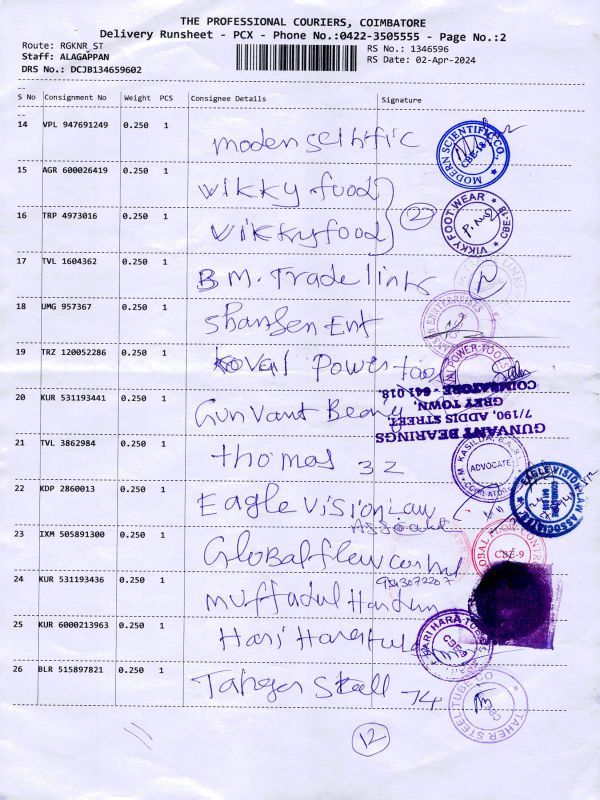 THE PROFESSIONAL COURIERS, COIMBATORE
Delivery Runsheet - PCX - Phone No.:0422-3505555 - Page No.:2
Route: RGKNR_ST
RS No.: 1346596
Staff: ALAGAPPAN
RS Date: 02-Apr-2024
DRS No.: DCJB134659602
S No Consignment No Weight PCS Consignee Details Signature
14 VPL 947691249 0.250 1
MODERN SCIENTIFIC CO. CBE-18
15 AGR 600026419 0.250 1 Wikky food
16 TRP 4973016 0.250 1 Vikky food
VIKKY FOOT WEAR CBE-18
17 TVL 1604362 0.250 1 B.M. Trade links
18 UMG 957367 0.250 1 Ent
ENTERPRISES
19 TRZ 120052286 0.250 1 Power
POWER TOOLS
20 KUR 531193441 0.250 1 Gunvant
GUNVANT BEARINGS
7/190, ADDIS STREET,
GREY TOWN,
COIMBATORE - 641 018.
21 TVL 3862984 0.250 1 thomas 32
ADVOCATE
22 KDP 2860013 0.250 1 Eagle Vision Law
EAGLE VISION LAW ASSOCIATES
23 IXM 505891300 0.250 1 Global
CBE-9
24 KUR 531193436 0.250 1
25 KUR 6000213963 0.250 1 Hari
HARI HARA
26 BLR 515897821 0.250 1 74
TAHER STEEL TUBE CO
12